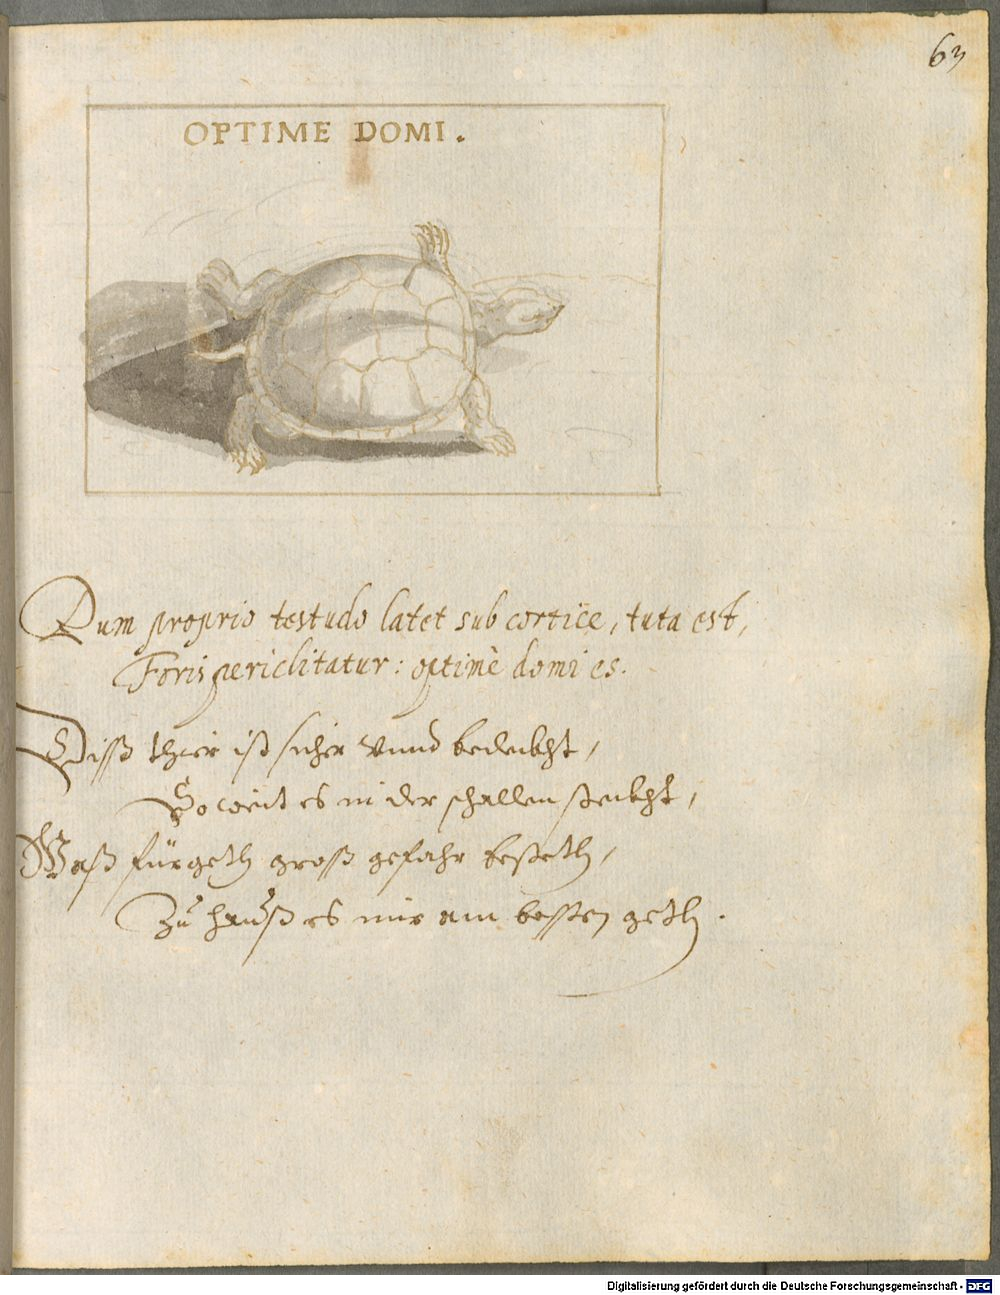 63
OPTIME DOMI.
Dum proprio testudo latet sub cortice, tuta est,
Foris periclitatur: optimè domi es.
Diß thier ist sicher vnnd bedeckht,
So weit es in der schallen steckht,
Waß fürgeth groß gefahr besteth,
Zu hauß es mir am besten geth.
Digitalisierung gefördert durch die Deutsche Forschungsgemeinschaft - DFG